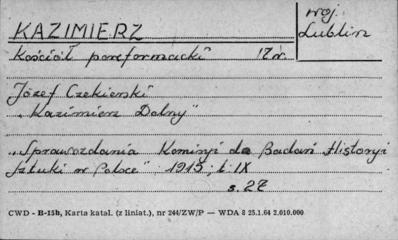 KAZIMIERZ
woj.
Lublin
Kościół poreformacki 17 w.
Józef Czekierski
"Kazimierz Dolny"
"Sprawozdania Komisyi do Badań Historyi
Sztuki w Polsce" 1915; t. IX
s. 27
CWD - B-15h, Karta katal. (z liniat.), nr 244/ZW/P — WDA 8 25.1.64 2.010.000